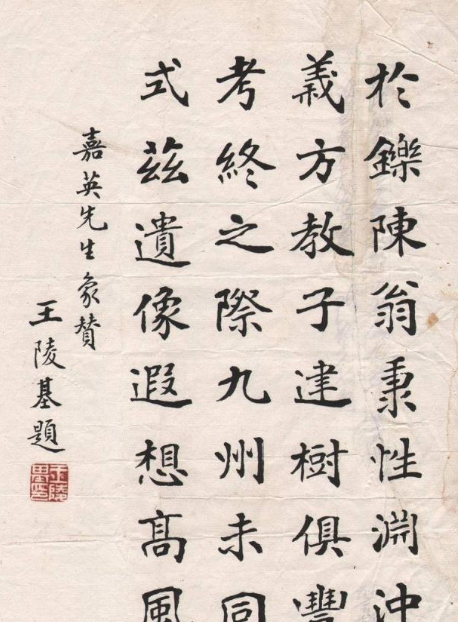 於鑠陳翁秉性淵沖
義方教子建樹俱豐
考終之際九州未同
式茲遺像遐想高風
嘉英先生象贊
王陵基題
王陵基印